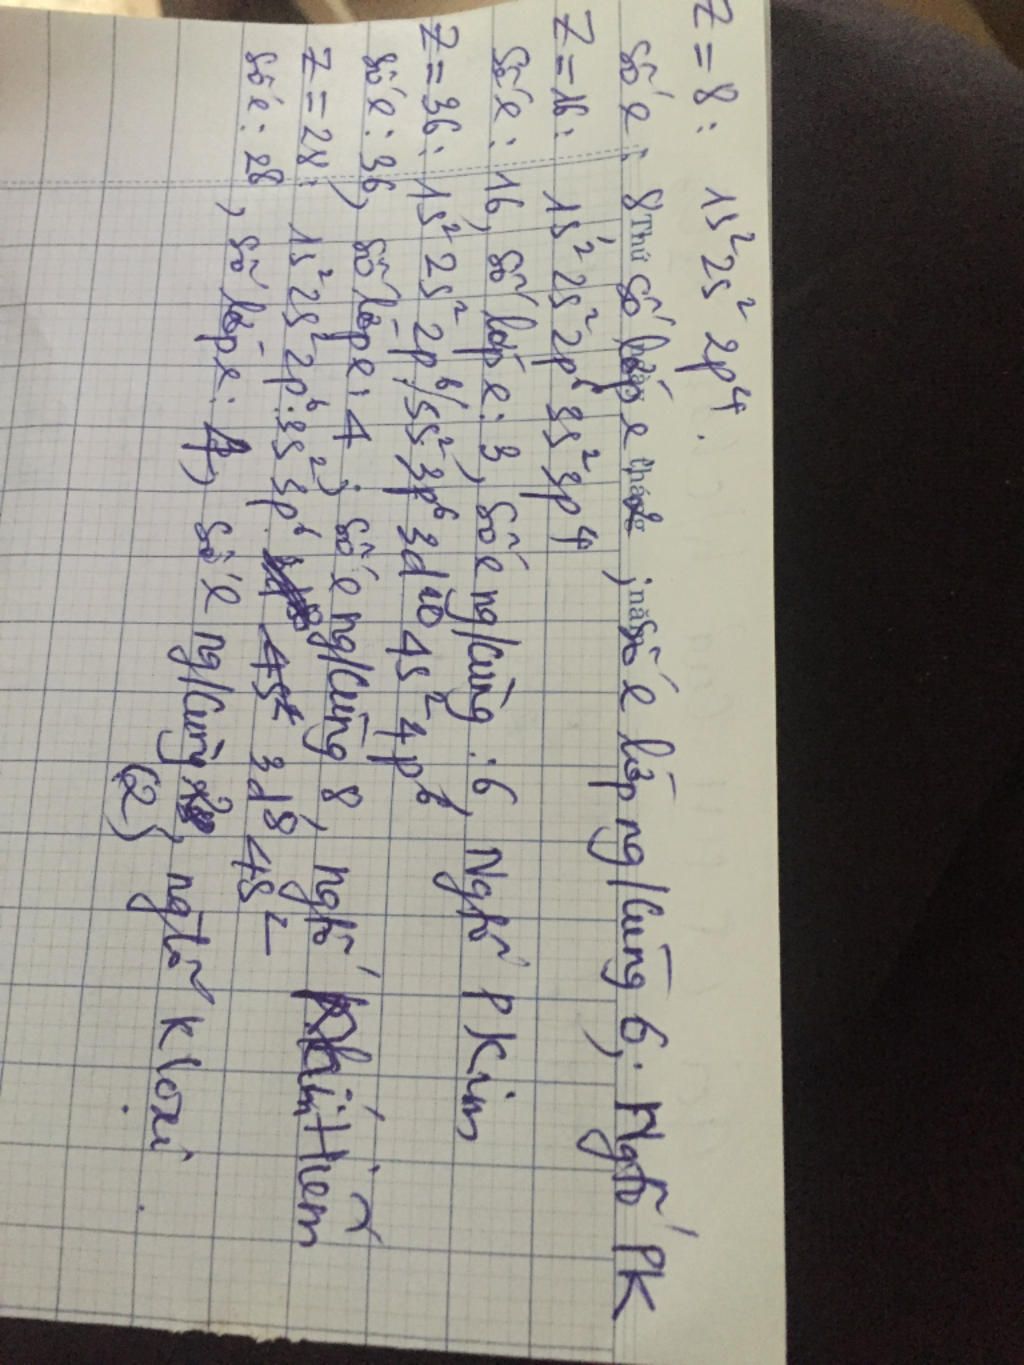 Z = 8: 1s² 2s² 2p⁴.
Số e: 8 Số lớp e 2, số e lớp ng/cùng 6. Ngtố PK
Z = 16: 1s² 2s² 2p⁶ 3s² 3p⁴
Số e: 16, số lớp e: 3, số e ng/cùng: 6, Ngtố PKim
Z = 36: 1s² 2s² 2p⁶ 3s² 3p⁶ 3d¹⁰ 4s² 4p⁶
Số e: 36, số lớp e: 4, số e ng/cùng 8, ngtố Khí Hiếm
Z = 28: 1s² 2s² 2p⁶ 3s² 3p⁶ 4s² 3d⁸ 4s²
Số e: 28, số lớp e: 4, số e ng/cùng, ngtố K loại.
(2)